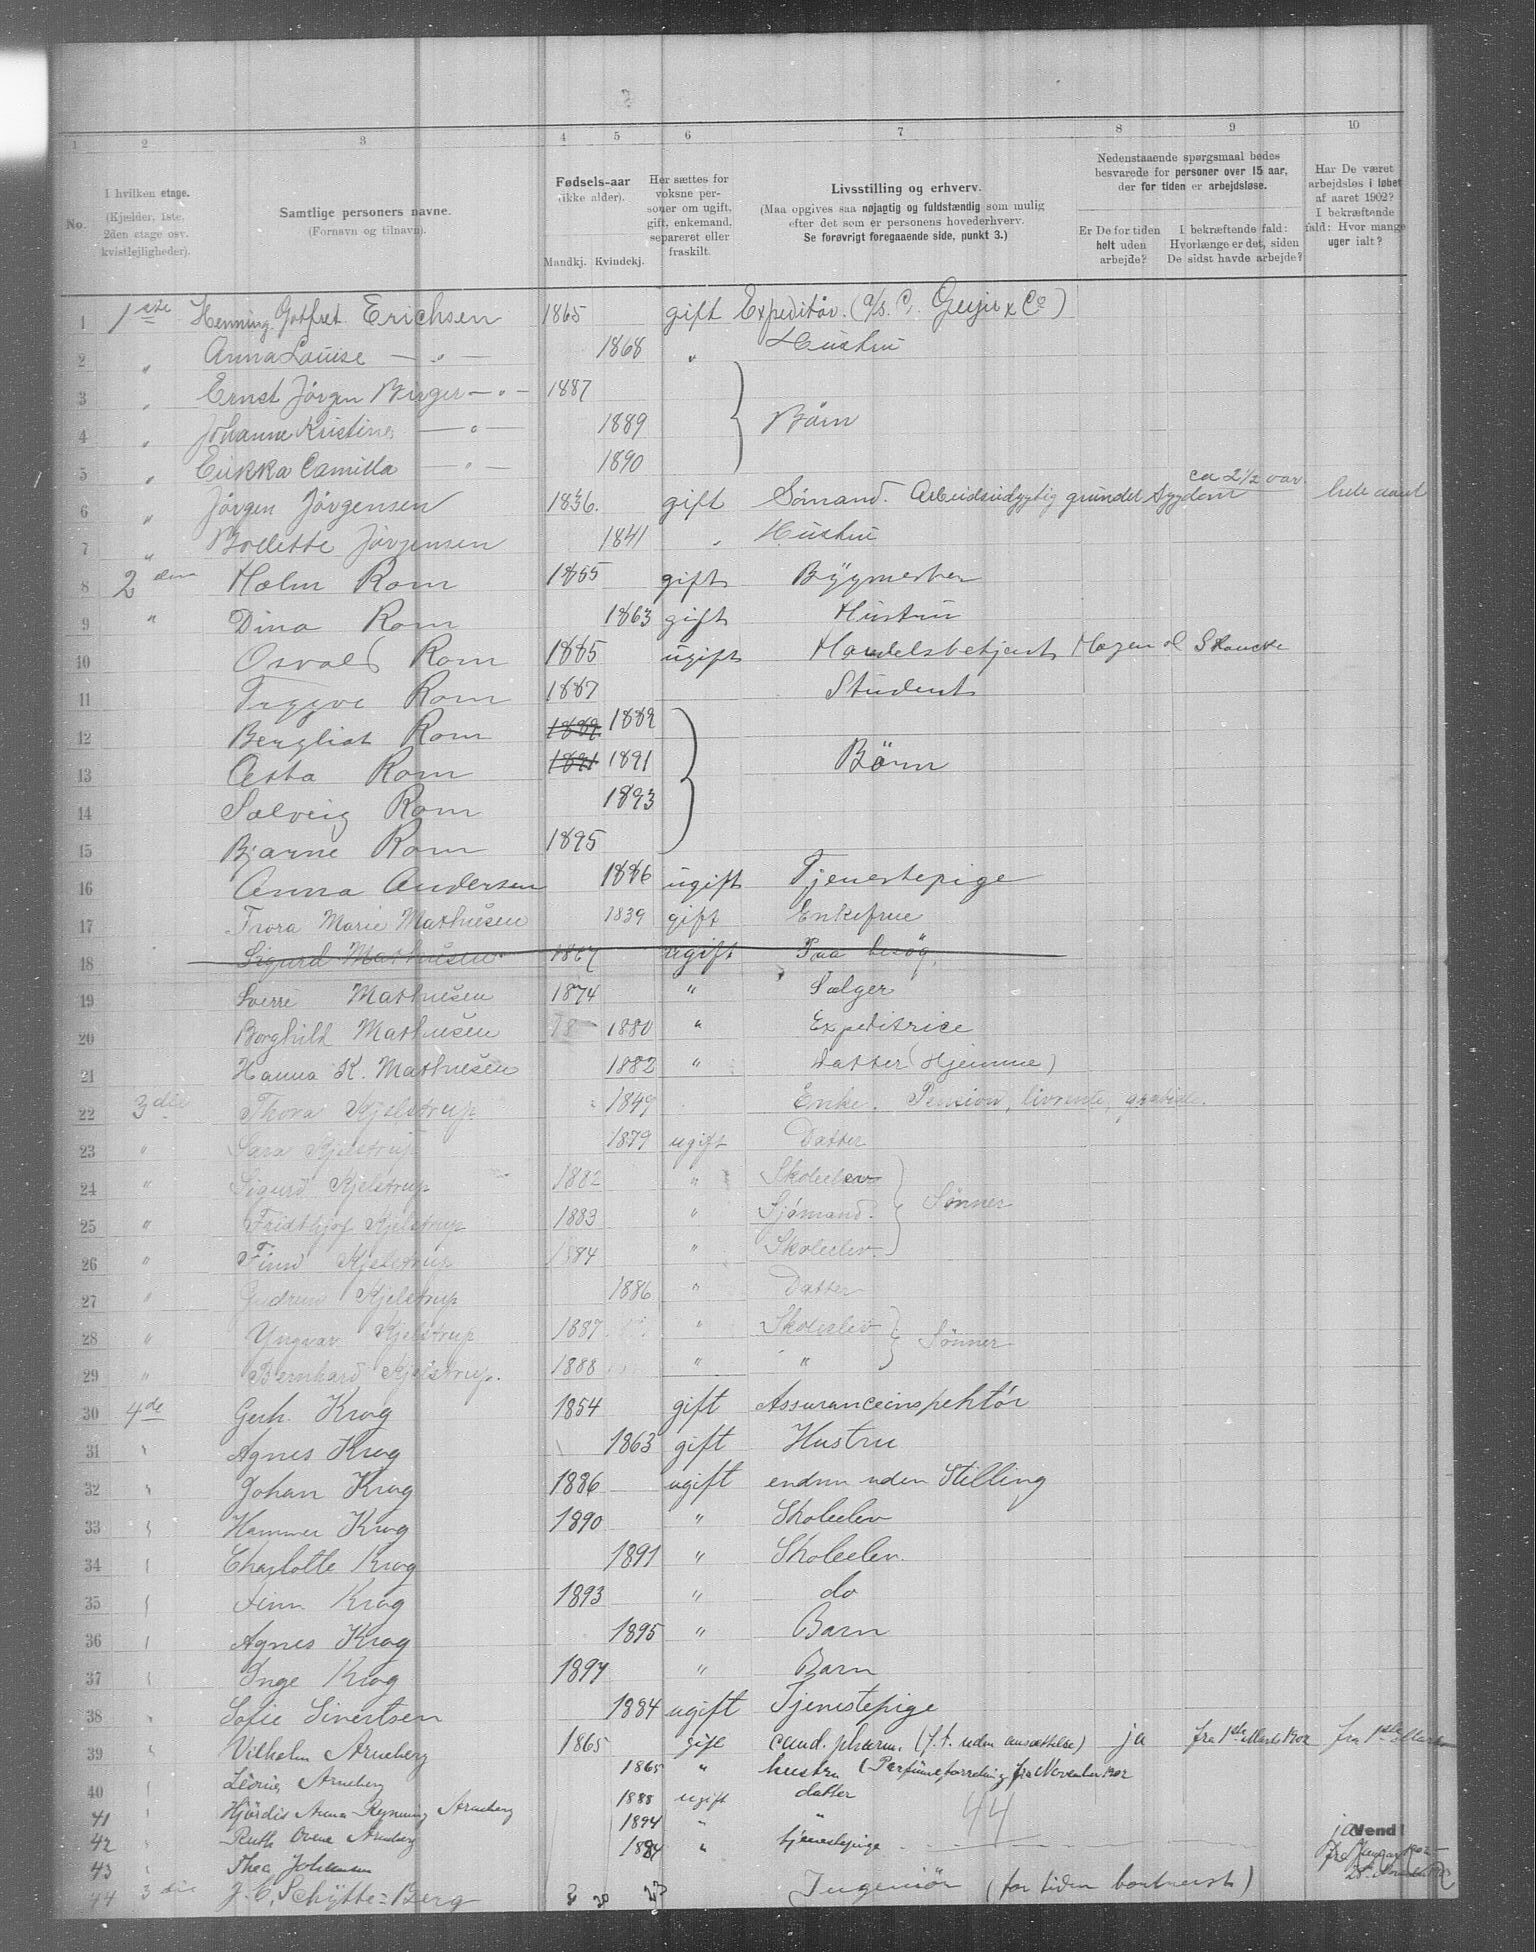 1 2 3 4 5 6 7 8 9 10
No.
I hvilken etage. (Kjælder, 1ste, 2den etage osv. kvistlejligheder).
Samtlige personers navne. (Fornavn og tilnavn).
Fødsels-aar (ikke alder). Mandkj. Kvindekj.
Her sættes for voksne personer om ugift, gift, enkemand, separeret eller fraskilt.
Livsstilling og erhverv. (Maa opgives saa nøjagtig og fuldstændig som mulig efter det som er personens hovederhverv. Se forøvrigt foregaaende side, punkt 3.)
Nedenstaaende spørgsmaal bedes besvarede for personer over 15 aar, der for tiden er arbejdsløse.
Er De for tiden helt uden arbejde?
I bekræftende fald: Hvorlænge er det, siden De sidst havde arbejde?
Har De været arbejdsløs i løbet af aaret 1902? I bekræftende fald: Hvor mange uger ialt?
1 1ste Henning Gotfret Erichsen 1865 gift Expeditør. (A/s. C. Geijer & Co)
2 " Anna Louise — " — 1868 " Hustru
3 " Ernst Jörgen Birger — " — 1887
4 " Johanne Kristine — " — 1889 Börn
5 " Erikka Camilla — " — 1890
6 " Jörgen Jörgensen 1836. gift Sömand. Arbeidsudygtig grundet Sygdom ca 2 1/2 aar. hele aaret
7 " Bollette Jörgensen 1841 " Hustru
8 2den Holm Rom 1855 gift Bÿgmester
9 " Dina Rom 1863 gift Hustru
10 Osvald Rom 1885 ugift Handelsbetjent Hagen & Skancke
11 Trygve Rom 1887 Student
12 Bergliot Rom 1889 1889
13 Asta Rom 1891 1891 Börn
14 Solveig Rom 1893
15 Bjarne Rom 1895
16 Anna Andersen 1886 ugift Tjenestepige
17 Thora Marie Mathiesen 1839 gift Enkefrue
18 Sigurd Mathiesen 1867 ugift Paa besøg.
19 Sverre Mathiesen 1874 " Sælger
20 Borghild Mathiesen 18 1880 " Expeditrice
21 Hanna K. Mathiesen 1882 " Datter (Hjemme)
22 3die Thora Kjelstrup 1849 Enke. Pension, livrente,
23 " Sara Kjelstrup 1879 ugift Datter
24 " Sigurd Kjelstrup 1882 " Skoleelev
25 " Fridthjof Kjelstrup 1883 " Sjömand. Sønner
26 " Finn Kjelstrup 1884 " Skoleelev.
27 " Gudrun Kjelstrup 1886 " Datter
28 " Yngvar Kjelstrup 1887 " Skoleelev Sønner
29 " Bernhard Kjelstrup. 1888 " "
30 4de Gerh. Krog 1854 gift Assuranceinspektör
31 " Agnes Krog 1863 gift Hustru
32 " Johan Krog 1886 ugift endnu uden Stilling
33 " Hammer Krog 1890 " Skoleelev
34 " Charlotte Krog 1891 " Skoleelev.
35 " Finn Krog 1893 " do
36 " Agnes Krog 1895 " Barn
37 " Inge Krog 1897 " Barn
38 " Sofie Sivertsen 1884 ugift Tjenestepige
39 " Vilhelm Arneberg 1865 gift cand. pharm. (f. t. uden ansættelse) ja fra 1ste Marts 1902 fra 1ste Marts
40 " Leonie Arneberg 1865 " hustru (Parfumeforretning fra November 1902
41 " Hjördis Anna Rynning Arneberg 1888 ugift datter
42 " Ruth Arneberg 1894 " "
43 " Thea Johansen 1884 " tjenestepige
44
ja
Vend!
44 3die J. C. Schÿtte-Berg 23 Ingeniör (for tiden bortreist)